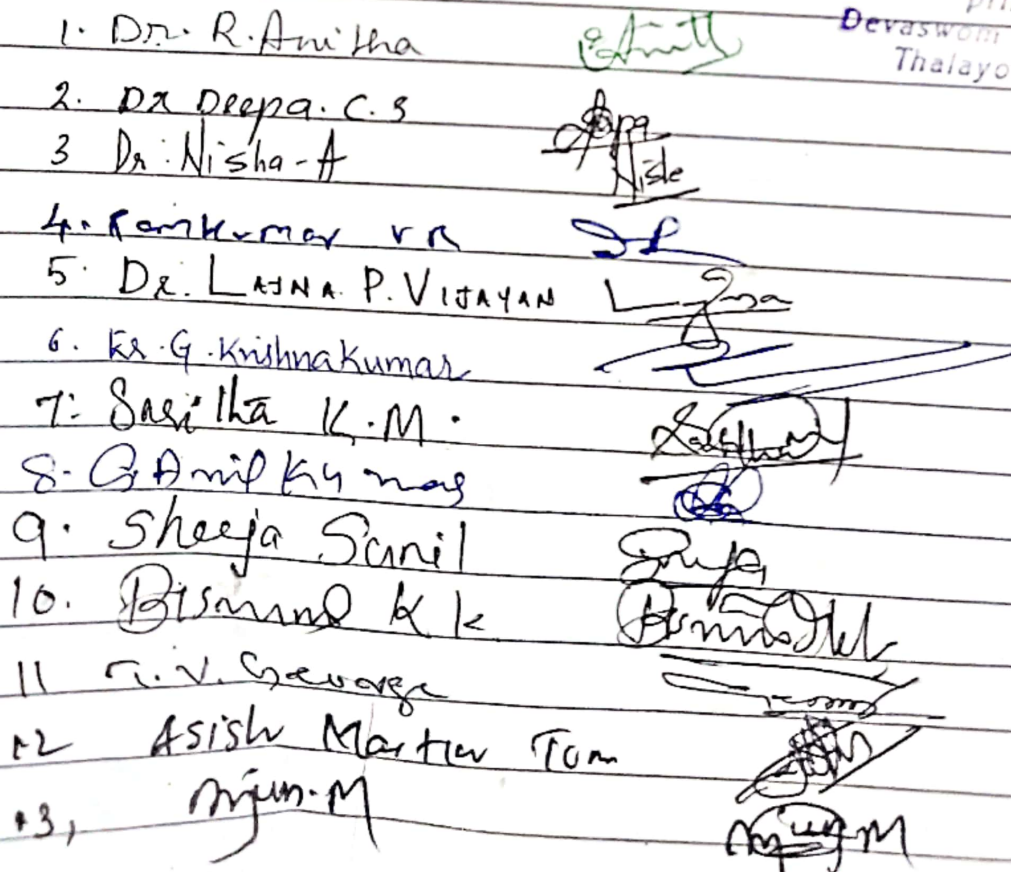 Devaswom
Thalayo
1. Dr. R. Anitha
2. Dr Deepa. C. S
3 Dr. Nisha - A Nisha
4. Ramkumar V R
5. Dr. LAJNA. P. VIJAYAN Lajna
6. G. Krishnakumar
7. Saritha K. M.
8. G Anil Kumar
9. Sheeja Sunil
10. K K
11 T. V. George
12 Asish Martin Tom
13, Arjun. M